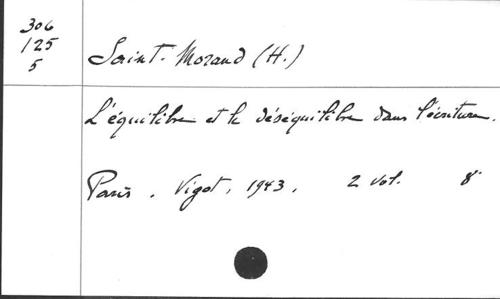 306
125
5
Saint-Morand (H.)
L'équilibre et le déséquilibre dans l'écriture.
Paris. Vigot, 1943, 2 vol. 8°